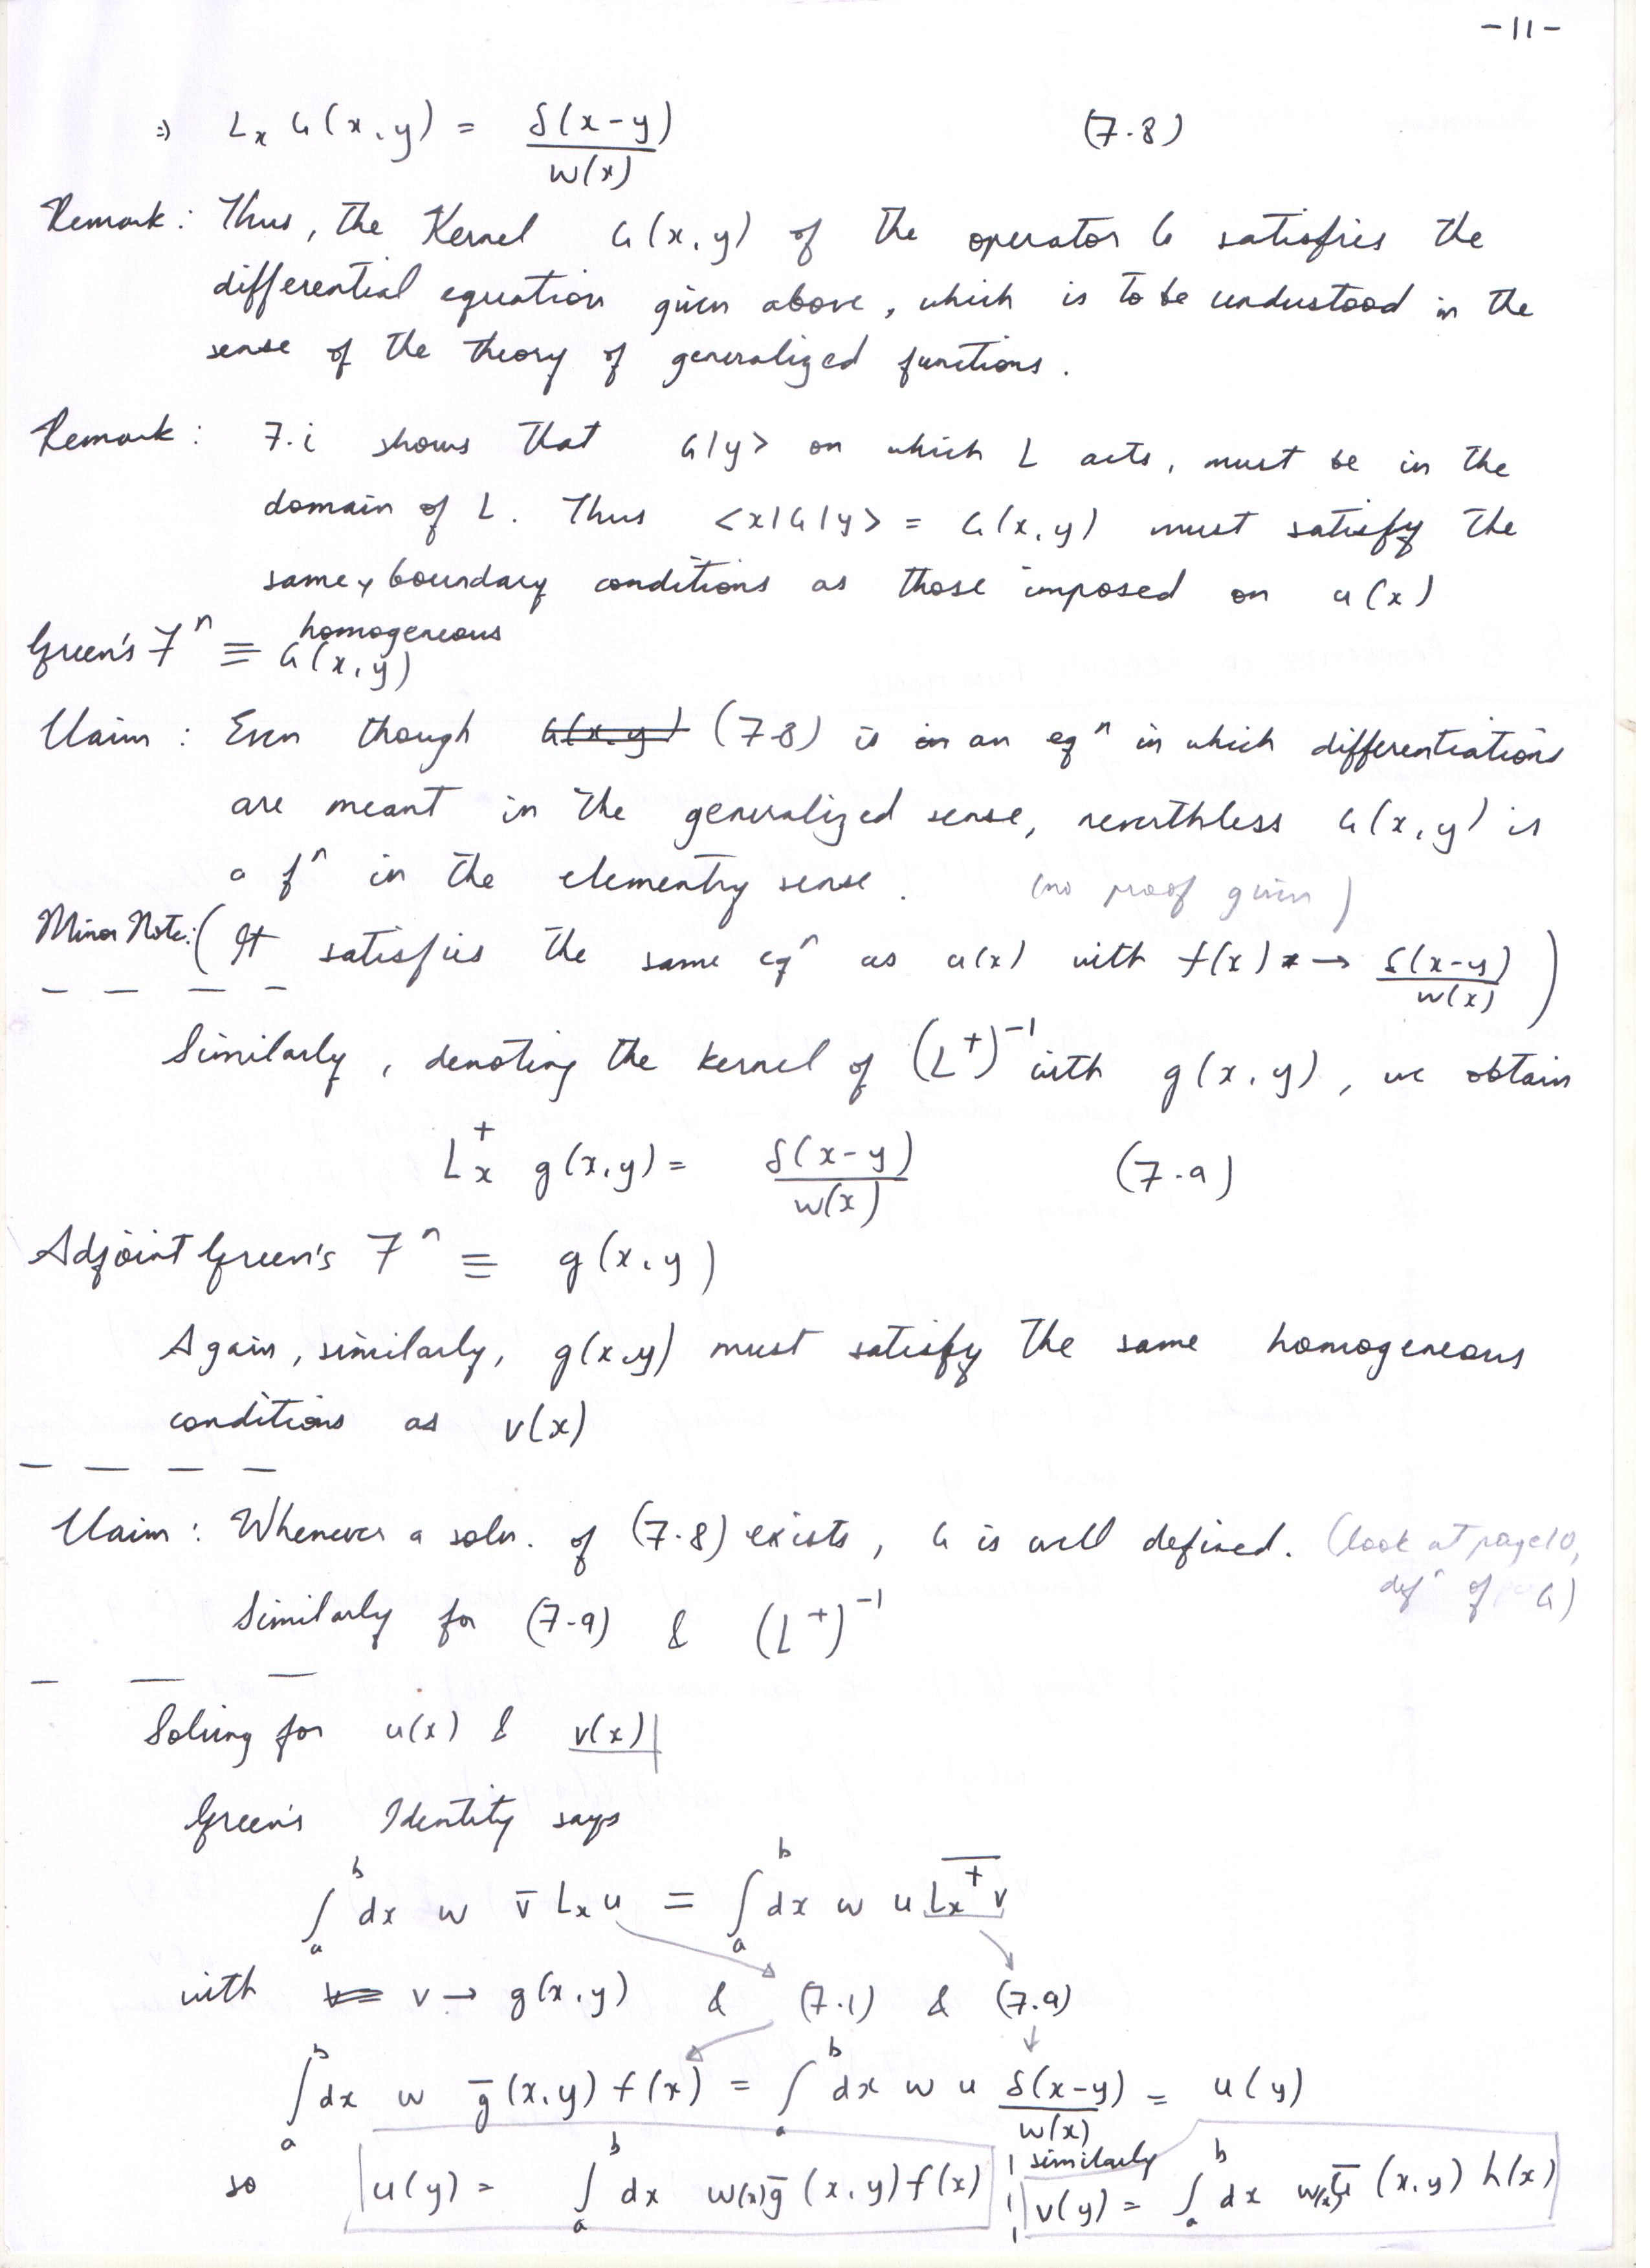 -11-
⇒ Lₓ G(x,y) = δ(x-y)/w(x) (7.8)
Remark: Thus, the Kernel G(x,y) of the operator G satisfies the
differential equation given above, which is to be understood in the
sense of the theory of generalized functions.
Remark: 7.i shows that G|y> on which L acts, must be in the
domain of L. Thus <x|G|y> = G(x,y) must satisfy the
same, boundary conditions as those imposed on u(x)
homogeneous
Green's Fⁿ ≡ G(x,y)
Claim: Even though G(x,y) (7.8) is in an eqⁿ in which differentiations
are meant in the generalized sense, neverthless G(x,y) is
a fⁿ in the elementry sense. (no proof given)
Minor Note: (It satisfies the same eqⁿ as u(x) with f(x) → δ(x-y)/w(x))
Similarly, denoting the kernel of (L⁺)⁻¹ with g(x,y), we obtain
Lₓ⁺ g(x,y) = δ(x-y)/w(x) (7.9)
Adjoint Green's Fⁿ ≡ g(x,y)
Again, similarly, g(x,y) must satisfy the same homogeneous
conditions as v(x)
Claim: Whenever a soln. of (7.8) exists, G is well defined. (look at page 10,
defⁿ of G)
Similarly for (7.9) & (L⁺)⁻¹
Solving for u(x) & v(x)
Green's Identity says
∫ₐᵇ dx w v̄ Lₓu = ∫ₐᵇ dx w u \overline{Lₓ⁺v}
with v → g(x,y) & (7.1) & (7.9)
∫ₐᵇ dx w ḡ(x,y) f(x) = ∫ₐᵇ dx w u δ(x-y)/w(x) = u(y)
so u(y) = ∫ₐᵇ dx w(x) ḡ(x,y) f(x) similarly v(y) = ∫ₐᵇ dx w(x) Ḡ(x,y) h(x)